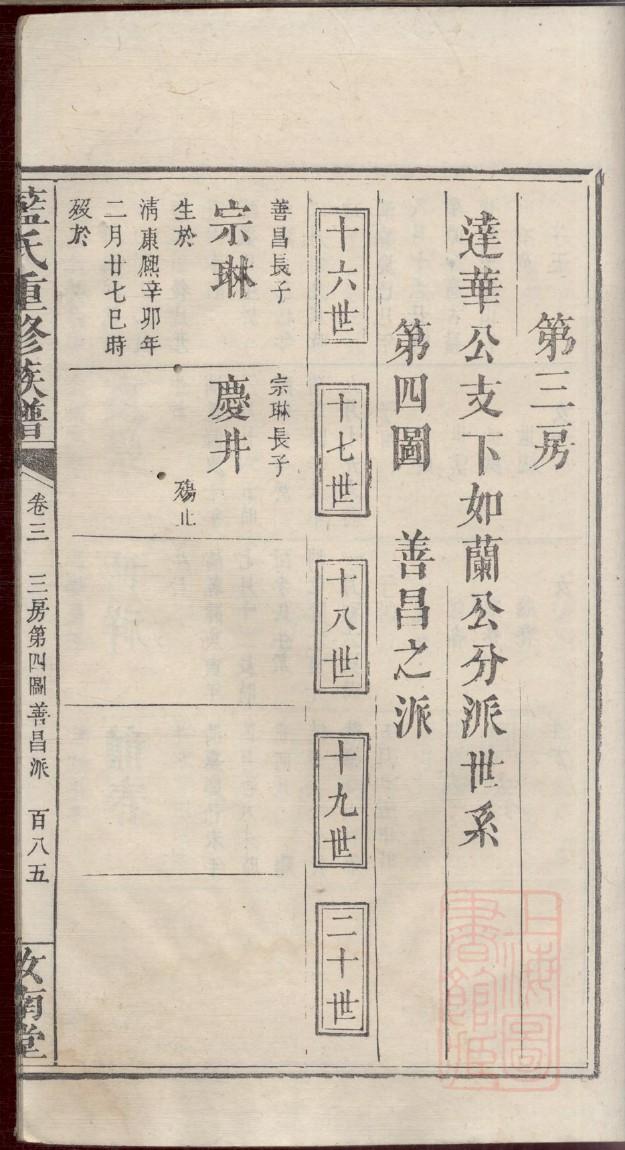 第三房
達華公支下如蘭公分派世系
第四圖　善昌之派
十六世
十七世
十八世
十九世
二十世
善昌長子
宗琳
生於
淸康熙辛卯年
二月廿七巳時
歿於
宗琳長子
慶井
殤止
藍氏重修族譜
卷三
三房第四圖善昌派
百八五
汝南堂
上海圖
書館藏